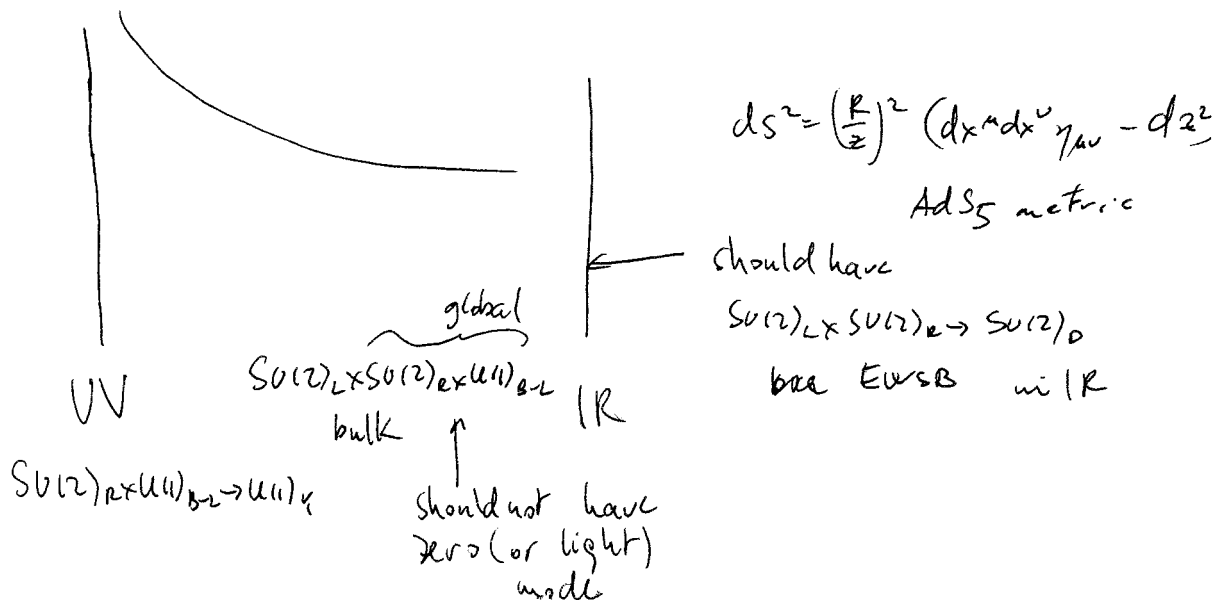 ds² = (R/z)² (dx^μ dx^ν η_μν - dz²)
AdS₅ metric
should have
SU(2)_L×SU(2)_R → SU(2)_D
EWSB in IR
global
SU(2)_L×SU(2)_R×U(1)_B-L
bulk
UV
IR
SU(2)_R×U(1)_B-L→U(1)_Y
should not have
zero (or light)
mode